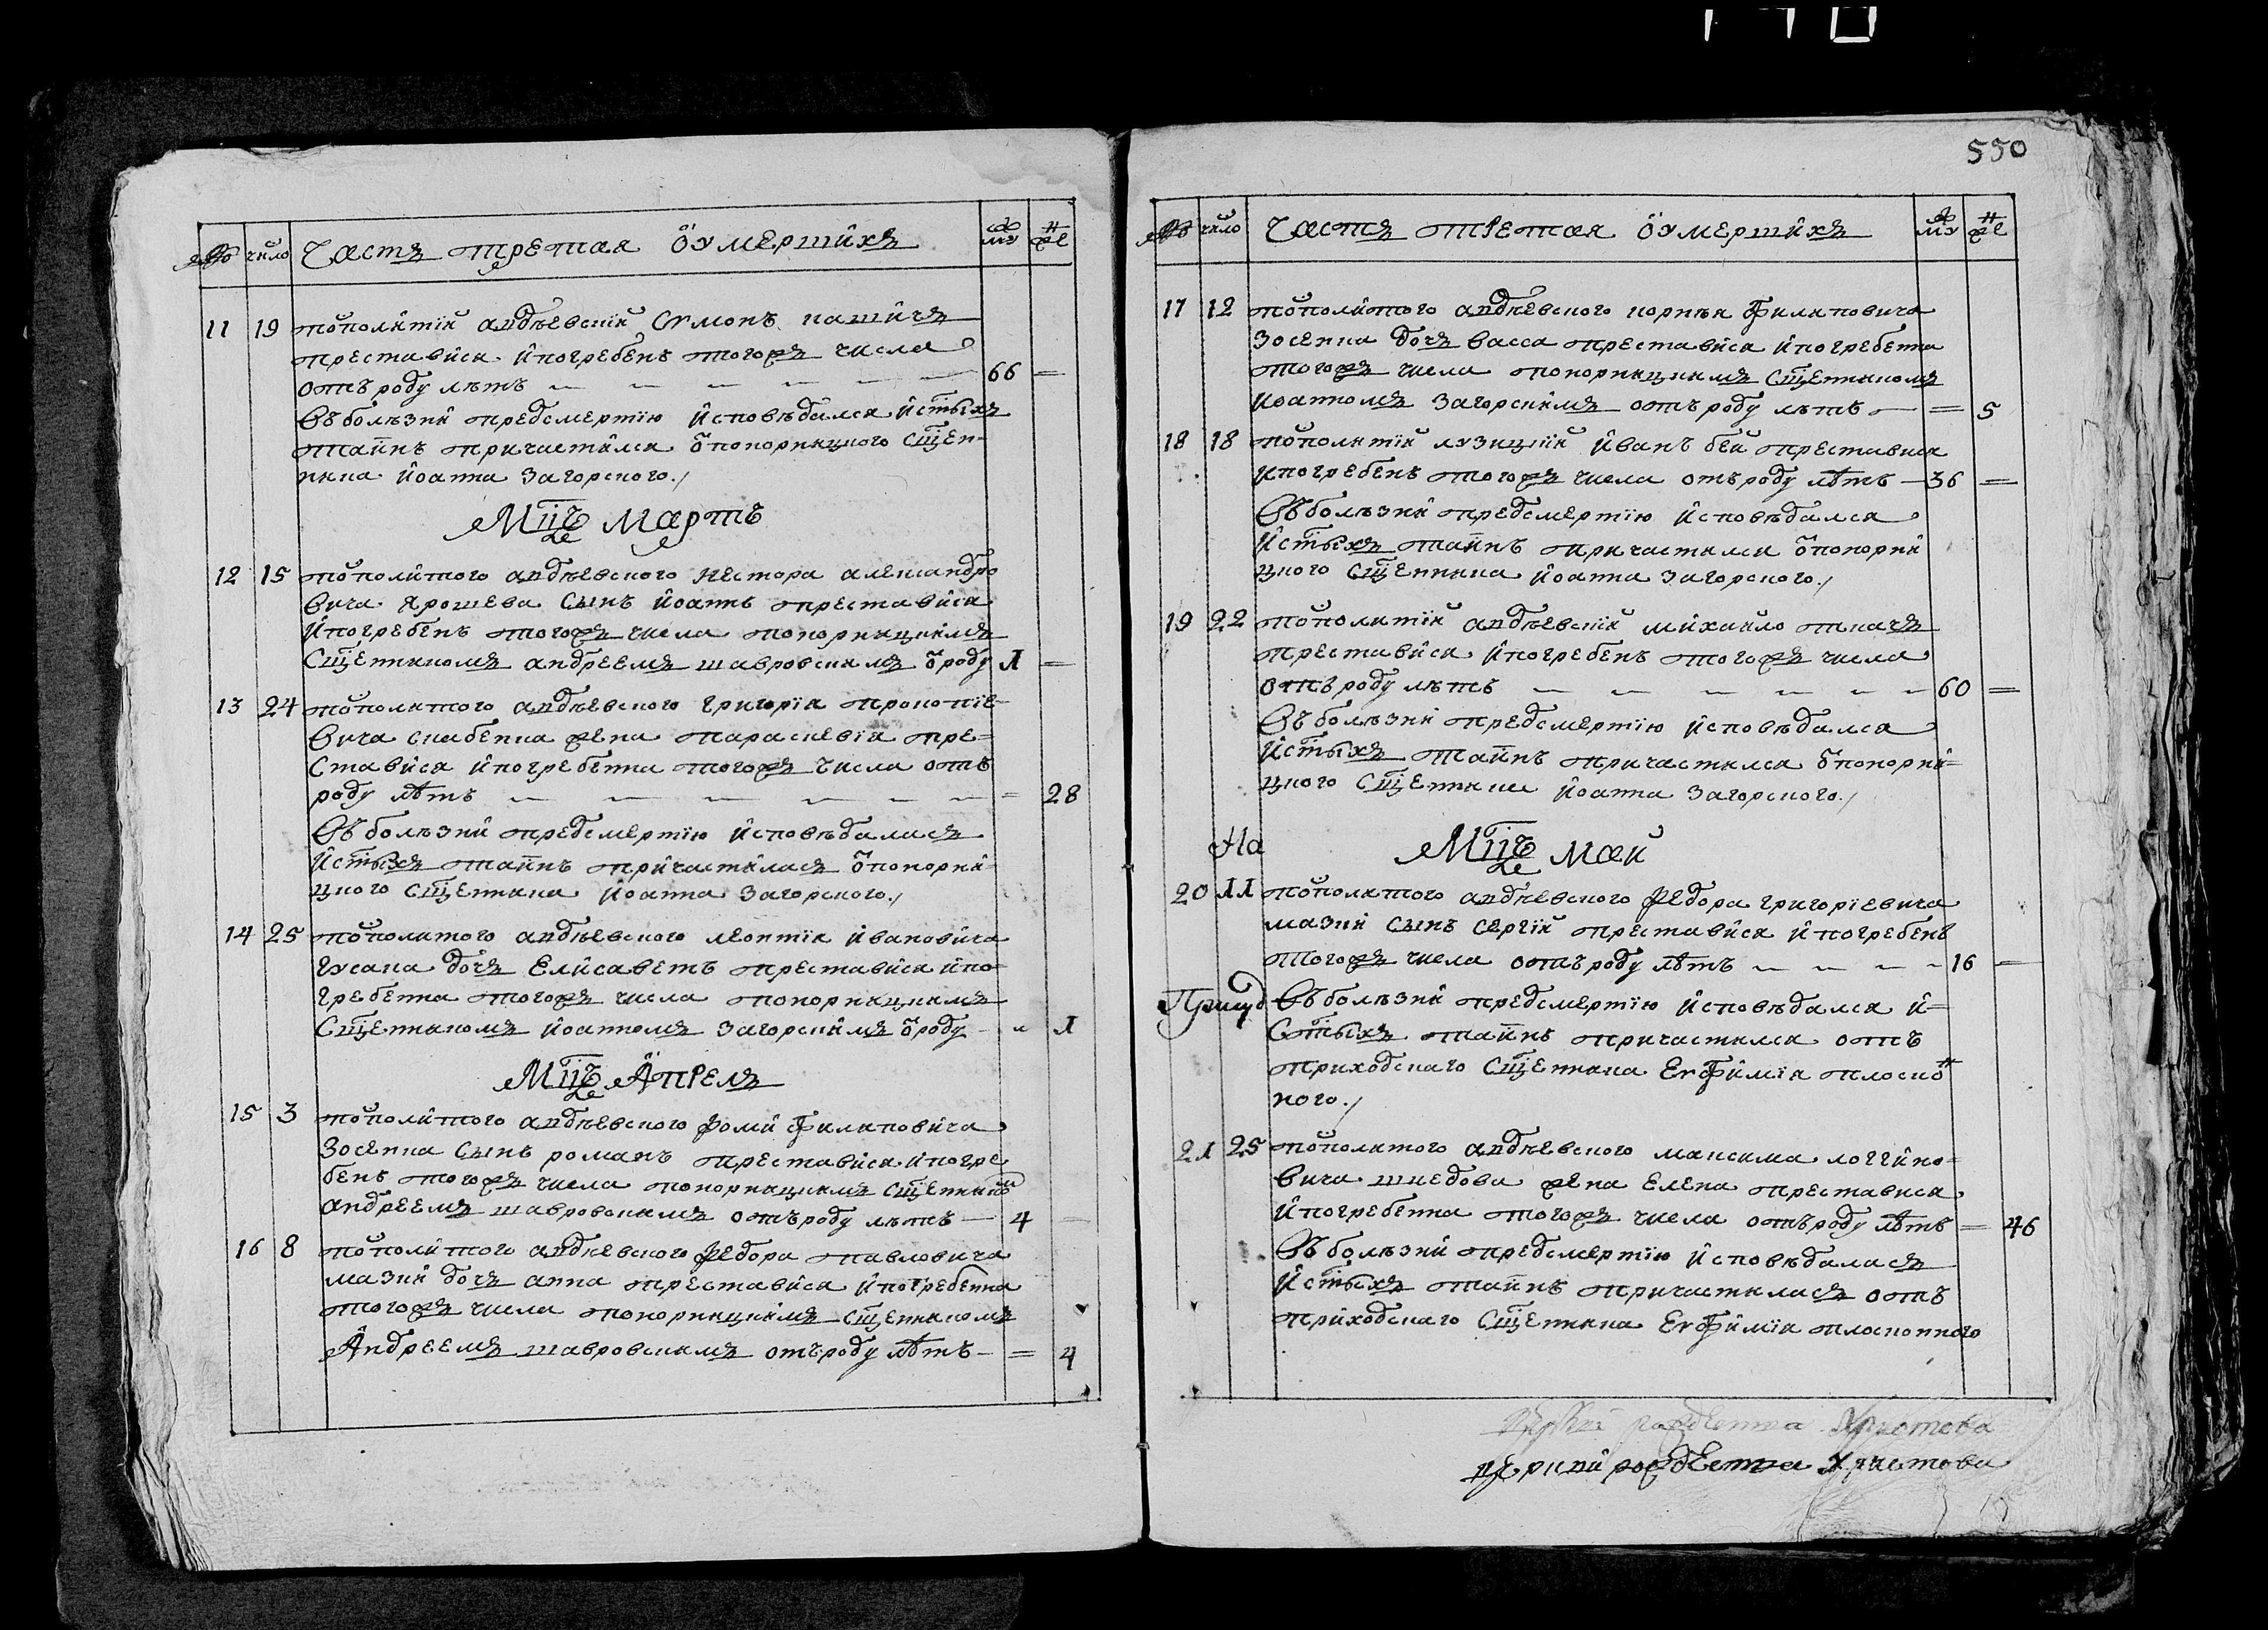 № число Часть третая о умершихъ му же
11 19 посполитій андреевскій Сумонъ пашичъ
преставися и погребенъ тогожъ числа
отъ роду летъ 66
Въ болезни предсмертію исповедался и стыхъ
таинъ причастился от понорницкого сщен-
ника иоанна загорского.
Мцъ Мартъ
12 15 посполитого андреевского нестора александро
вича ярошева сынъ иоаннъ преставися
и погребенъ тогожъ числа понорницкимъ
сщенникомъ андреемъ шавровскимъ от роду 1
13 24 посполитого андреевского григорія прокопіе-
вича скабенка жена параскевія пре-
ставися и погребенна тогожъ числа отъ
роду летъ 28
Въ болезни предсмертію исповедалась
и стыхъ таинъ причастилась от понорни-
цкого сщенника иоанна загорского.
14 25 посполитого андреевского леонтія ивановича
гусака дочъ Елисаветъ преставися и по-
гребенна тогожъ числа понорницкимъ
сщенникомъ иоанномъ загорскимъ от роду 1
Мцъ Апрель
15 3 посполитого андреевского фоми филиповича
зосенка сынъ романъ преставися и погре
бенъ тогожъ числа понорницкимъ сщенникомъ
андреемъ шавровскимъ отъ роду летъ 4
16 8 посполитого андреевского федора павловича
мазки дочъ анна преставися и погребенна
тогожъ числа понорницкимъ сщенникомъ
Андреемъ шавровскимъ отъ роду летъ 4
550
№ число Часть третая о умершихъ му же
17 12 посполитого андреевского корнея филиповича
зосенка дочъ васса преставися и погребенна
тогожъ числа понорницкимъ сщенникомъ
иоанномъ загорскимъ отъ роду летъ 5
18 18 посполитій иванъ бей преставися
и погребенъ тогожъ числа отъ роду летъ 36
Въ болезни предсмертію исповедался
и стыхъ таинъ причастился от понорни
цкого сщенника иоанна загорского.
19 22 посполитій андреевскій михайло ткачъ
преставися и погребенъ тогожъ числа
отъ роду летъ 60
Въ болезни предсмертію исповедался
и стыхъ таинъ причастился от понорни-
цкого сщенника иоанна загорского.
На Мцъ Май
20 11 посполитого андреевского федора григоріевича
мазки сынъ сергій преставися и погребенъ
тогожъ числа отъ роду летъ 16
Въ болезни предсмертію исповедался и
стыхъ таинъ причастился отъ
приходского сщенника Евфимія плоскон
ного.
21 25 посполитого андреевского максима логгино-
вича шведова жена Елена преставися
и погребенна тогожъ числа отъ роду летъ 46
Въ болезни предсмертію исповедалась
и стыхъ таинъ причастилась отъ
приходского сщенника Евфимія плосконного
рождества Христова
церкви рождества Христова